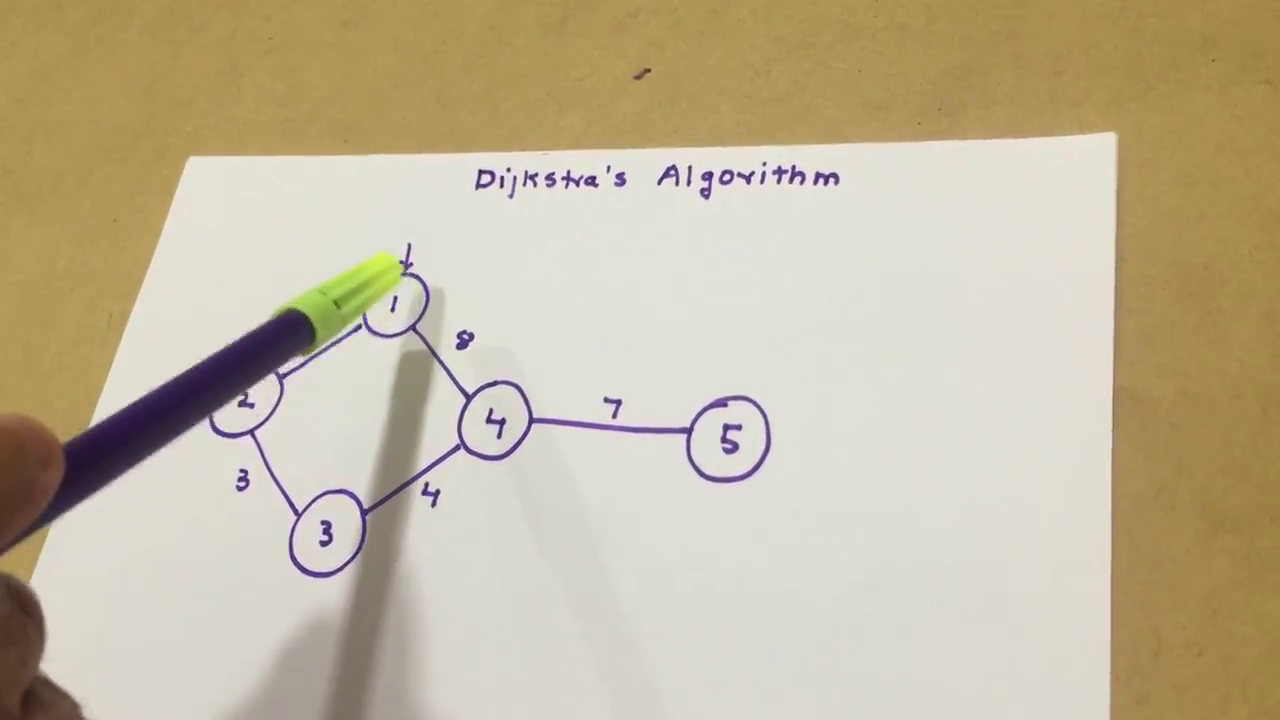 Dijkstra's Algorithm
1
8
2
4
7
5
3
4
3